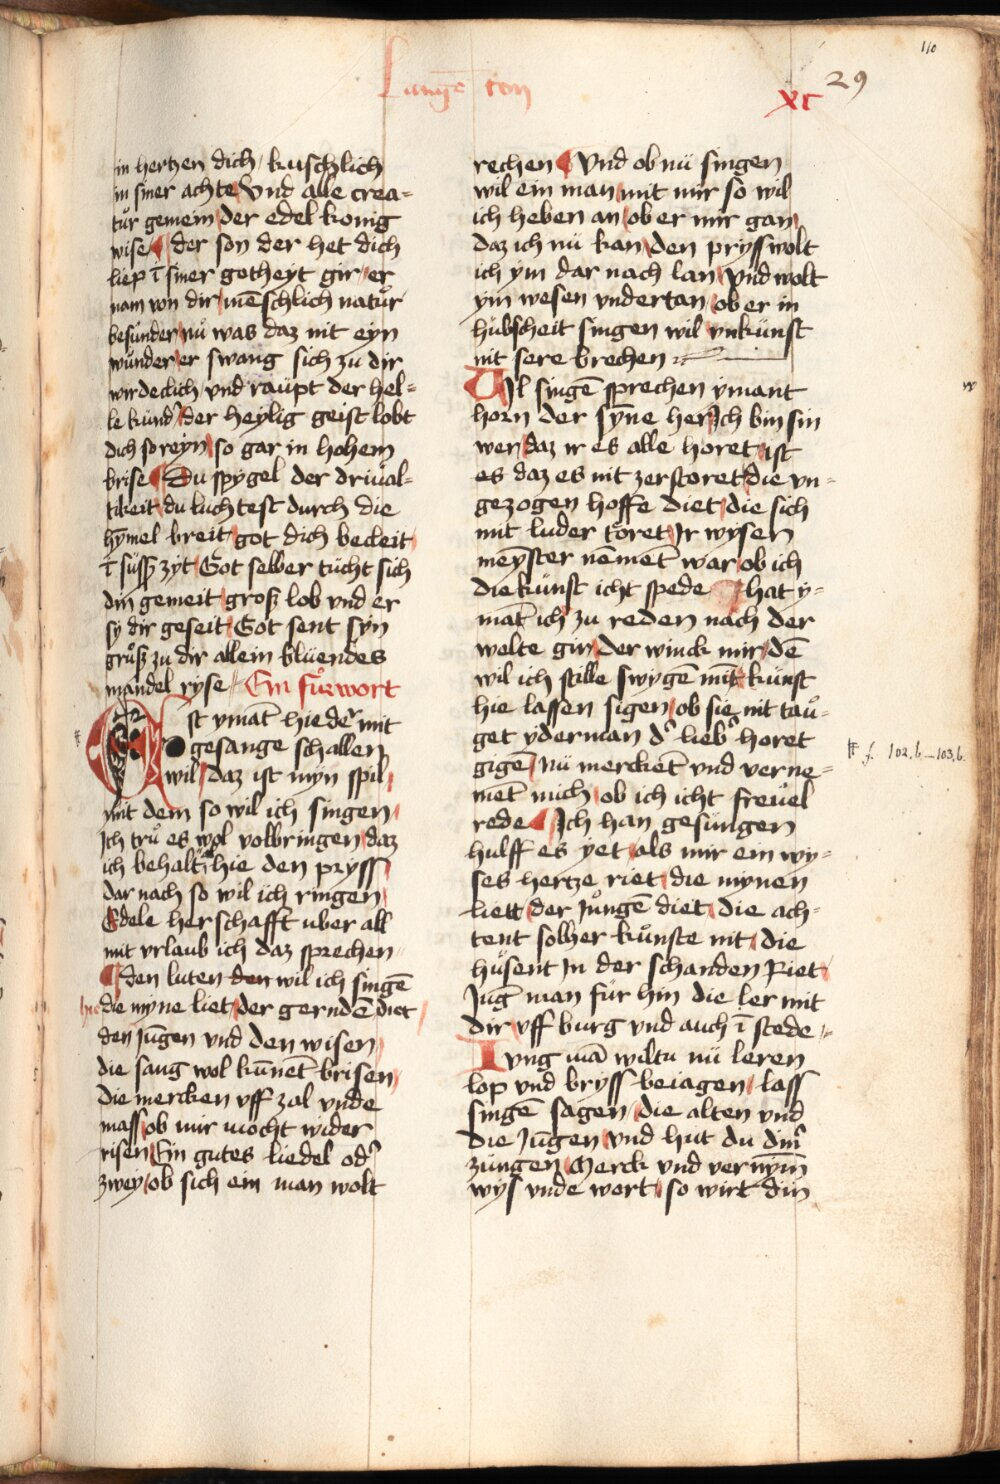 110
Lange ton
xc 29
in hertzen dich / kuschlich
in siner achte / Vnd alle crea-
tur gemein / der edel konig
wise / der son der het dich
liep ī siner gotheyt gir / er
nam von dir / mēschlich natur
besunder / nu was daz nit eyn
wunder / er swang sich zu dir
wirdeclich vnd raupt der hel-
le kund / der heylig geist lobt
dich so reyn / so gar in hohem
brise / Du spygel der driual-
tikeit / du luchtest durch die
hymel breit / got dich becleit /
ī susz zyt / Got selber tucht sich
din gemeit / grosz lob vnd er
sy dir geseit / Got sent syn
grusz zu dir allein bluendes
mandel ryse / Ein furwort
Ist ymāt hie der mit
gesange schallen
wil / daz ist myn spil /
mit dem so wil ich singen /
Ich tru es wol volbringen / daz
ich behalt hie den pryss
dar nach so wil ich ringen /
Edele herschafft uber all
mit vrlaub ich daz sprechen
den luten den wil ich singē
die myne liet / der gerndē diet /
hie
den Jūgen vnd den wisen /
die sang wol kunnēt brisen /
die mercken vff zal vnde
mass / ob mir mocht wider
risen / Ein gutes liedel od'
zwey / ob sich ein man wolt
rechen / Vnd ob nu singen
wil ein man / mit mir so wil
ich heben an / ob er mir gan /
daz ich nu kan / den pryss wolt
ich ym dar nach lan / Vnd wolt
ym wesen vndertan / ob er in
hubscheit singen wil vnkunst
nit sere brechen
Wil singē sprechen ymant
horn der syne her / Ich bin sin
wer / daz ir es alle horet / ist
es daz es nit zerstoret / die vn-
gezogen hoffe diet / die sich
mit luder toret / Ir wysen
meyster nemēt war / ob ich
die kunst icht spede / hat y-
māt ich zu reden nach der
welte gir / der winck mir / dē
wil ich stille swygē mit / kunst
hie lassen sigen / ob sie nit tau-
get yderman d' lieb' horet
gigē / nu merckēt vnd verne-
mēt mich / ob ich icht freuel
rede / Ich han gesungen
hulff es yet / als mir ein wy-
ses hertze riet / die mynen
liett / der Jungē diet / die ach-
tent solher kunste nit / die
husent In der schanden Riet /
Jūg man fur hin die ler mit
dir / vff burg vnd auch ī stede
Iung mā wiltu nu leren
lop vnd bryss beiagen / lass
singē sagen / die alten vnd
die Jūgen / vnd hut du din'
zungen / Merck vnd vernym
wys vnde wort / so wirt din
f. 102.b–103.b.